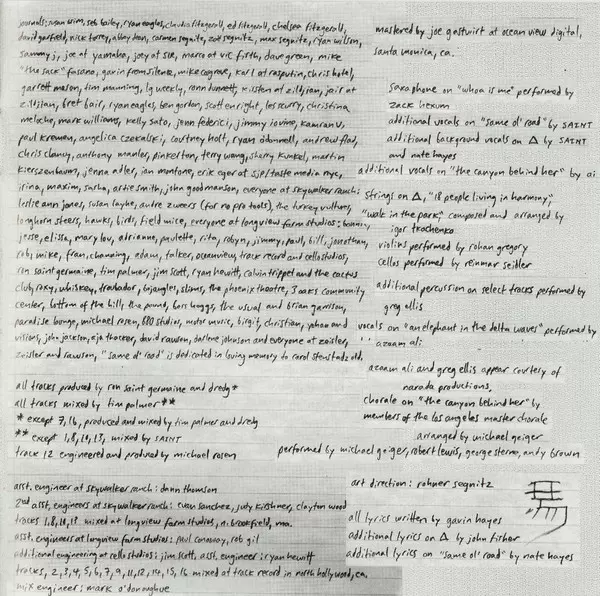 journals: susan wrim, seb bailey, ryan eagles, claudia fitzgerall, ed fitzgerall, chelsea fitzgerall,
david garfield, nick torrey, abbey dean, carmen segnitz, zoe segnitz, max segnitz, ryan willson,
sammy j, joe at yamaha, joey at sir, marco at vic firth, dave green, mike
"the sack" fasano, gavin from silenz, mike cosgrave, karl at rasputin, chris hotel,
garrett mason, tim manning, lg weekly, ronn dunnett, kirsten at zildjian, jair at
zildjian, bret bair, ryan eagles, ben gordon, scott enright, les scurry, christina
meloche, mark williams, kelly sato, jenn federici, jimmy iovine, kamran v,
paul kremen, angelica czekalski, courtney holt, ryan o'donnell, andrew flad,
chris clancy, anthony manler, pinkerton, terry wang, sherry kunkel, martin
kierszenbaum, jenna adler, ian montone, eric eger at sjp/taste media nyc,
irina, maxim, sasha, artie smith, john goodmanson, everyone at skywalker ranch:
leslie ann jones, susan layhe, andre zweers (for no pro tools), the turkey vultures,
longhorn steers, hawks, birds, field mice, everyone at longview farm studios: bonnie,
jesse, elissa, mary lou, adrianne, paulette, rita, robyn, jimmy, paul, bill, jonathan,
rob, mike, fran, channing, adam, falker, oceanview, track record and cello studios,
ron saint germaine, tim palmer, jim scott, ryan hewitt, calvin trippet and the cactus
club, roxy, whiskey, trubador, bojangles, slims, the phoenix theatre, 3 oaks community
center, bottom of the hill, the pound, bors huggs, the usual and brian garrison,
paradise lounge, michael rosen, 880 studios, motor music, birgit, christian, johan and
visions, john jackson, eja thacker, david rawson, darlene johnson and everyone at zeisler,
zeisler and rawson, "same ol' road" is dedicated in loving memory to carol stenstadzold.
all tracks produced by ron saint germaine and dredg*
all tracks mixed by tim palmer**
* except 7,16, produced and mixed by tim palmer and dredg
** except 1,8,10,13, mixed by SAINT
track 12 engineered and produced by michael rosen
asst. engineer at skywalker ranch: dann thomson
2nd asst, engineers at skywalker ranch: evan sanchez, judy kirshner, clayton wood
tracks 1,8,10,13 mixed at longview farm studios, n. brookfield, ma.
asst. engineers at longview farm studios: paul conaway, rob gil
additional engineering at cello studios: jim scott, asst. engineer: ryan hewitt
tracks, 2,3,4,5,6,7,9,11,12,14,15,16 mixed at track record in north hollywood, ca.
mix engineer: mark o'donoughue
mastered by joe gastwirt at ocean view digital,
santa monica, ca.
saxaphone on "whoa is me" performed by
zack hexum
additional vocals on "same ol' road" by SAINT
additional background vocals on Δ by SAINT
and nate hayes
additional vocals on "the canyon behind her" by ai
strings on Δ, "18 people living in harmony,"
"walk in the park," composed and arranged by
igor tkachenko
violins performed by rohan gregory
cellos performed by reinmar seidler
additional percussion on select tracks performed by
greg ellis
vocals on "an elephant in the delta waves" performed by
azaam ali
azaam ali and greg ellis appear courtesy of
narada productions,
chorale on "the canyon behind her" by
members of the los angeles master chorale
arranged by michael geiger
performed by michael geiger, robert lewis, george sterne, andy brown
art direction: rohner segnitz
all lyrics written by gavin hayes
additional lyrics on Δ by john fisher
additional lyrics on "same ol' road" by nate hayes